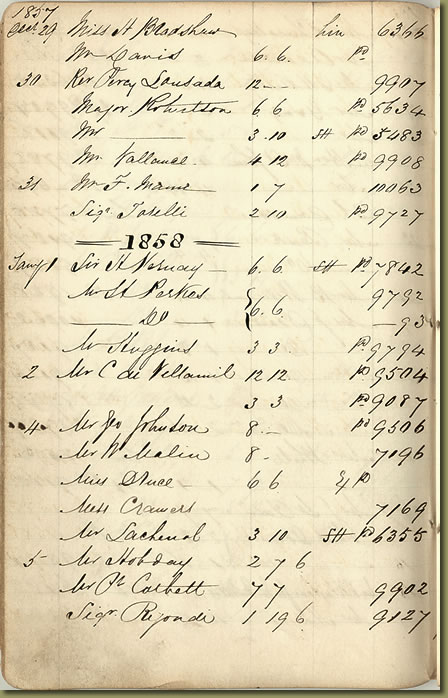 1857
Decr. 29 Miss H Bradshaw hire 6366
Mr Davis 6. 6. Pd
30 Rev Percy Lousada 12 - - 9907
Major Robertson 6. 6 Pd 5634
Mr ——— 3. 10 SH Pd 5483
Mr Vallance 4 12 Pd 9908
31 Mr F. 1 7 10063
Sigr. 2 10 Pd 9727
1858
Jany 1 Sir H Vernay 6. 6. SH Pd 7842
Mr St Perkes 6. 6 9792
——— Do ——— — 93
Mr Huggins 3 3. Pd 9794
2 Mr C de Villamil 12 12. Pd 9504
3 3 Pd 9087
4 Mr Geo Johnson 8 - Pd 9506
Mr W Malin 8 - 7196
Miss 6 6
Mess Cramers 7169
Mr Lachenal 3 10 SH Pd 6355
5 Mr Hobday 2 7 6
Mr Corbett 7 7 9902
Sigr. Regondi 1 19 6 9127